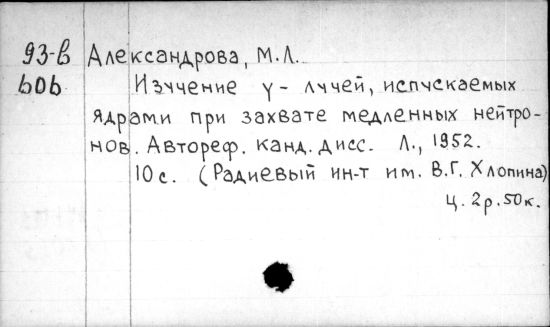 93-в Александрова, М.Л.
606 Изучение γ- лучей, испускаемых
ядрами при захвате медленных нейтро-
нов. Автореф. канд. дисс. Л., 1952.
10 с. (Радиевый ин-т им. В.Г. Хлопина)
ц. 2р.50к.